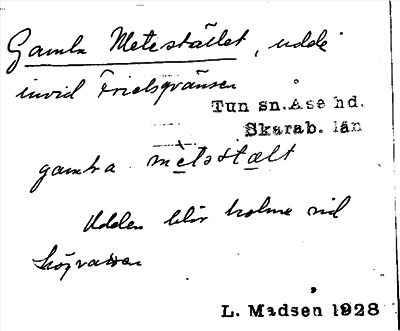 Gamla Metestället, udde
invid Frielsgränsen
Tun sn. Åse hd.
Skarab. län
gamla metəstælt
Udden blir holme vid
högvatten
L. Madsen 1928